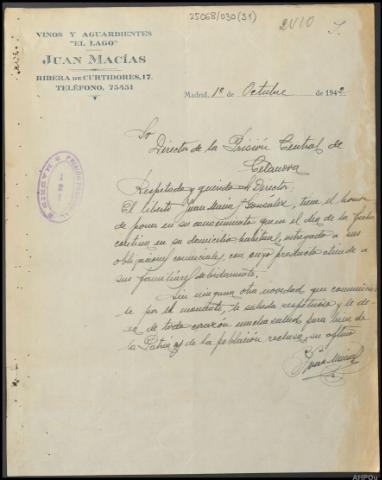 25068/030(31)
2410
VINOS Y AGUARDIENTES
"EL LAGO"
JUAN MACÍAS
RIBERA DE CURTIDORES, 17
TELÉFONO, 75451
Madrid, 1º de Octubre de 1942
Sr
Director de la Prisión Central de
Celanova
Respetado y querido Sr Director:
El liberto Juan Macías Gonzalez, tiene el honor
de poner en su conocimiento que en el día de la fecha
continua en su domicilio habitual, entregado a sus
obligaciones comerciales, con cuyo producto atiende a
sus familiares debidamente.
Sin ninguna otra novedad que comunicar
le por el momento, le saluda respetuoso y le de
sea de todo corazón mucha salud para bien de
la Patria y de la población reclusa, su afftmo
Juan Macías
AHPOu